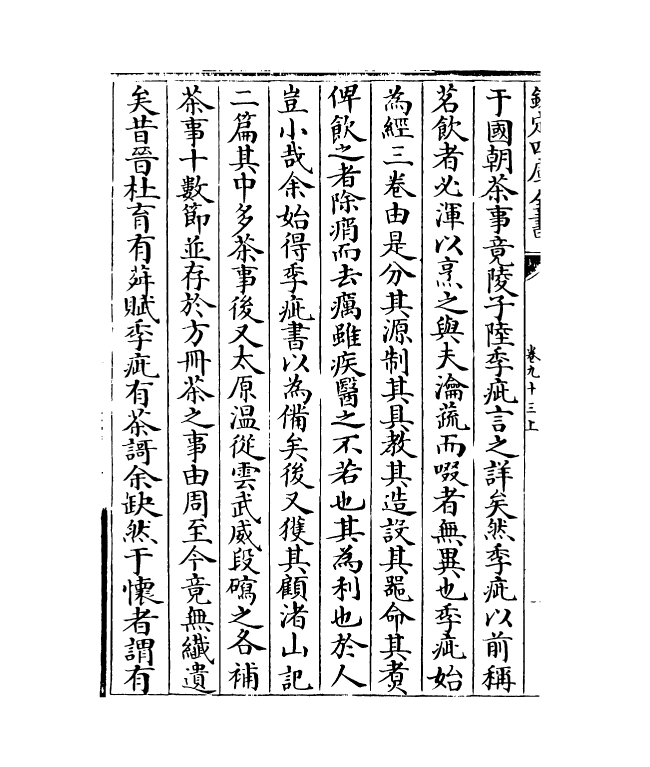 欽定四庫全書
卷九十三上
于國朝茶事竟陵子陸季疵言之詳矣然季疵以前稱
茗飲者必渾以烹之與夫瀹蔬而啜者無異也季疵始
為經三卷由是分其源制其具教其造設其器命其煑
俾飲之者除痟而去癘雖疾醫之不若也其為利也於人
豈小哉余始得季疵書以為備矣後又獲其顧渚山記
二篇其中多茶事後又太原温從雲武威段磶之各補
茶事十數節並存於方冊茶之事由周至今竟無纎遺
矣昔晉杜育有荈賦季疵有茶謌余缺然于懷者謂有